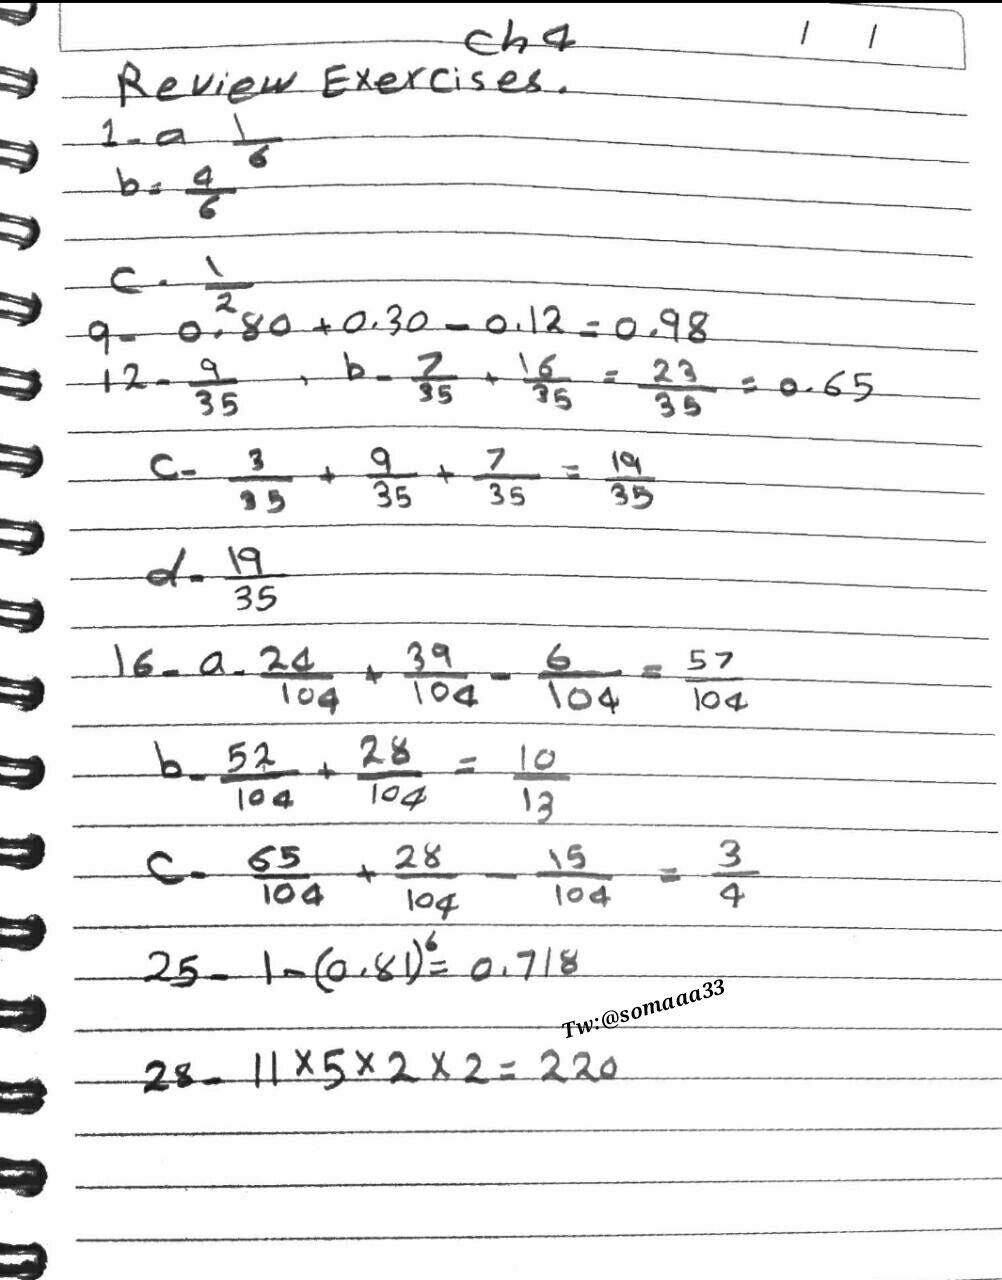 Ch 4
/ /
Review Exercises.
1- a 1/6
b= 4/6
c. 1/2
9- 0.80 + 0.30 - 0.12 = 0.98
12- 9/35 , b- 7/35 + 16/35 = 23/35 = 0.65
c- 3/35 + 9/35 + 7/35 = 19/35
d- 19/35
16- a- 24/104 + 39/104 - 6/104 = 57/104
b- 52/104 + 28/104 = 10/13
c- 65/104 + 28/104 - 15/104 = 3/4
25- 1-(0.81)⁶= 0.718
Tw:@somaaa33
28- 11×5×2×2= 220